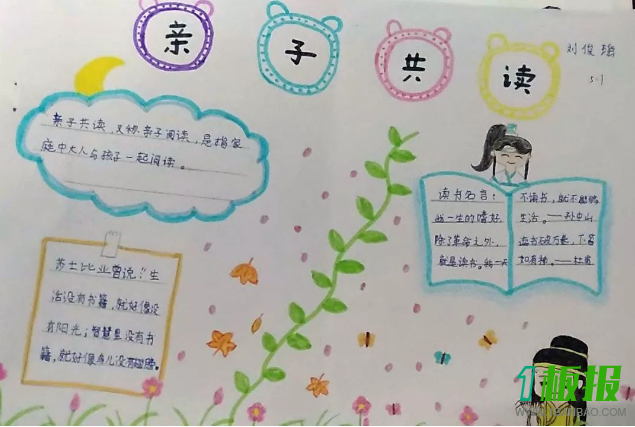 亲子共读
刘俊瑶
5-1
亲子共读,又称亲子阅读,是指家
庭中大人与孩子一起阅读。
莎士比业曾说:"生
活没有书籍,就好像没
有阳光;智慧里没有书
籍,就好像鸟儿没有翅膀。
读书名言:
我一生的嗜好,
除了革命之外,
就是读书。我一天
不读书,就不能够
生活。——孙中山
读书破万卷,下笔
如有神。——杜甫
1板报